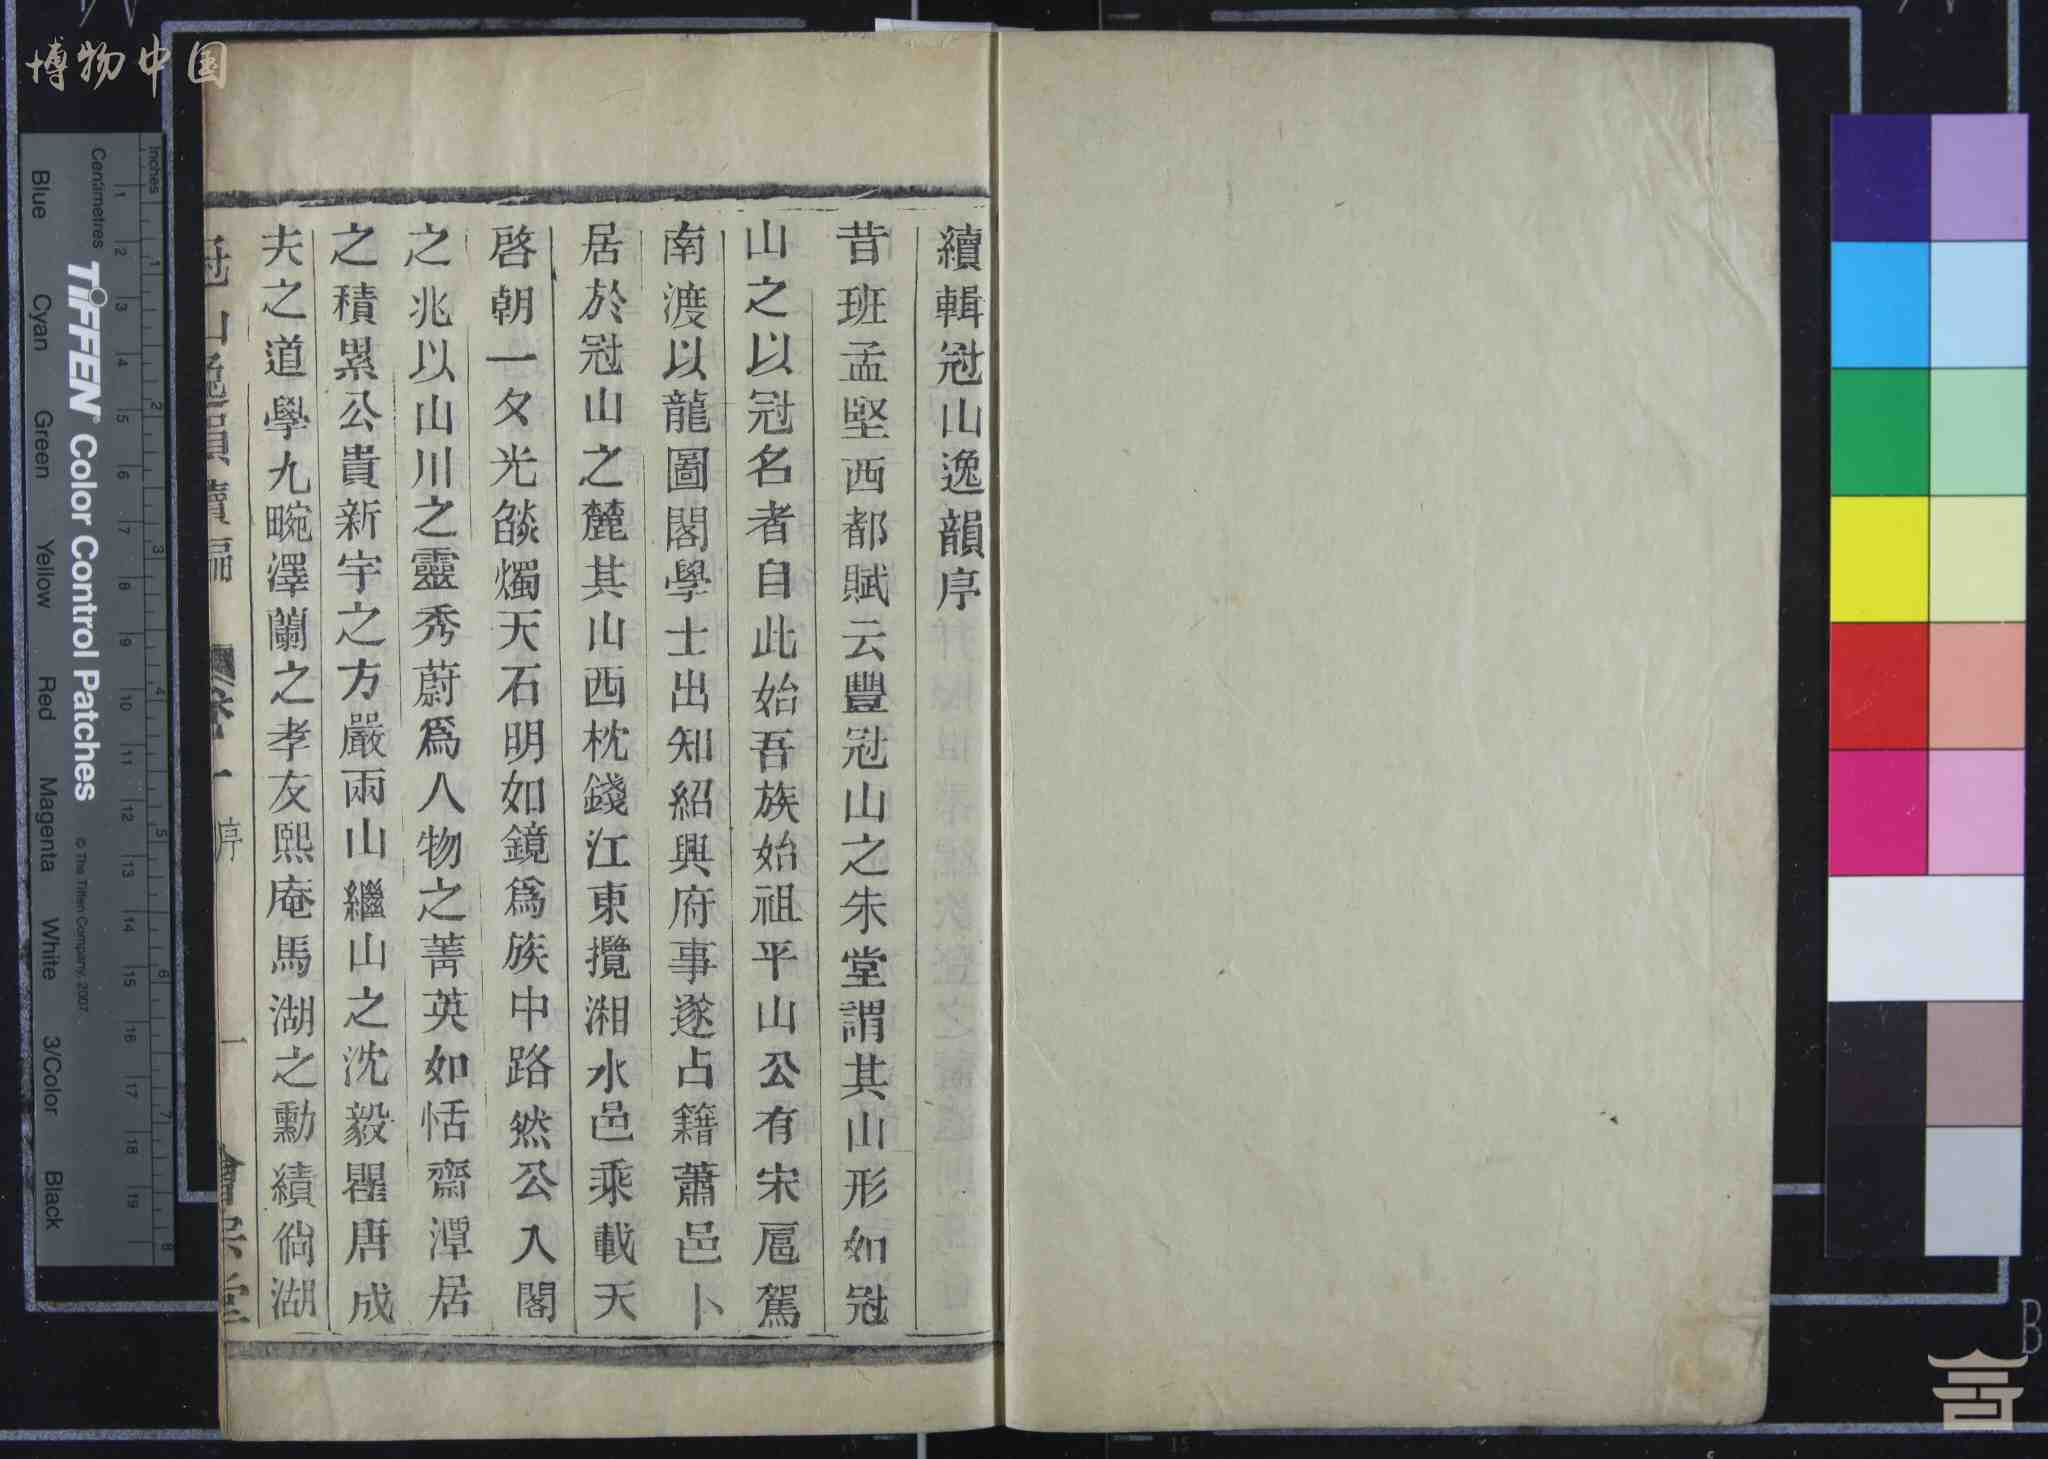 續輯冠山逸韻序
昔班孟堅西都賦云豐冠山之朱堂謂其山形如冠
山之以冠名者自此始吾族始祖平山公有宋扈駕
南渡以龍圖閣學士出知紹興府事遂占籍蕭邑卜
居於冠山之麓其山西枕錢江東攬湘水邑乘載天
啓朝一夕光燄燭天石明如鏡爲族中路然公入閣
之兆以山川之靈秀蔚爲人物之菁英如恬齋潭居
之積累公貴新宇之方嚴雨山繼山之沈毅瞿唐成
夫之道學九畹澤蘭之孝友熙庵馬湖之勳績倘湖
冠山逸韻續編 卷一 序 一
博物中国
Inches
Centimetres
1 2 3 4 5 6 7 8 9 10 11 12 13 14 15 16 17 18 19
1 2 3 4 5 6 7 8
TIFFEN Color Control Patches
© The Tiffen Company, 2007
Blue Cyan Green Yellow Red Magenta White 3/Color Black
B
15